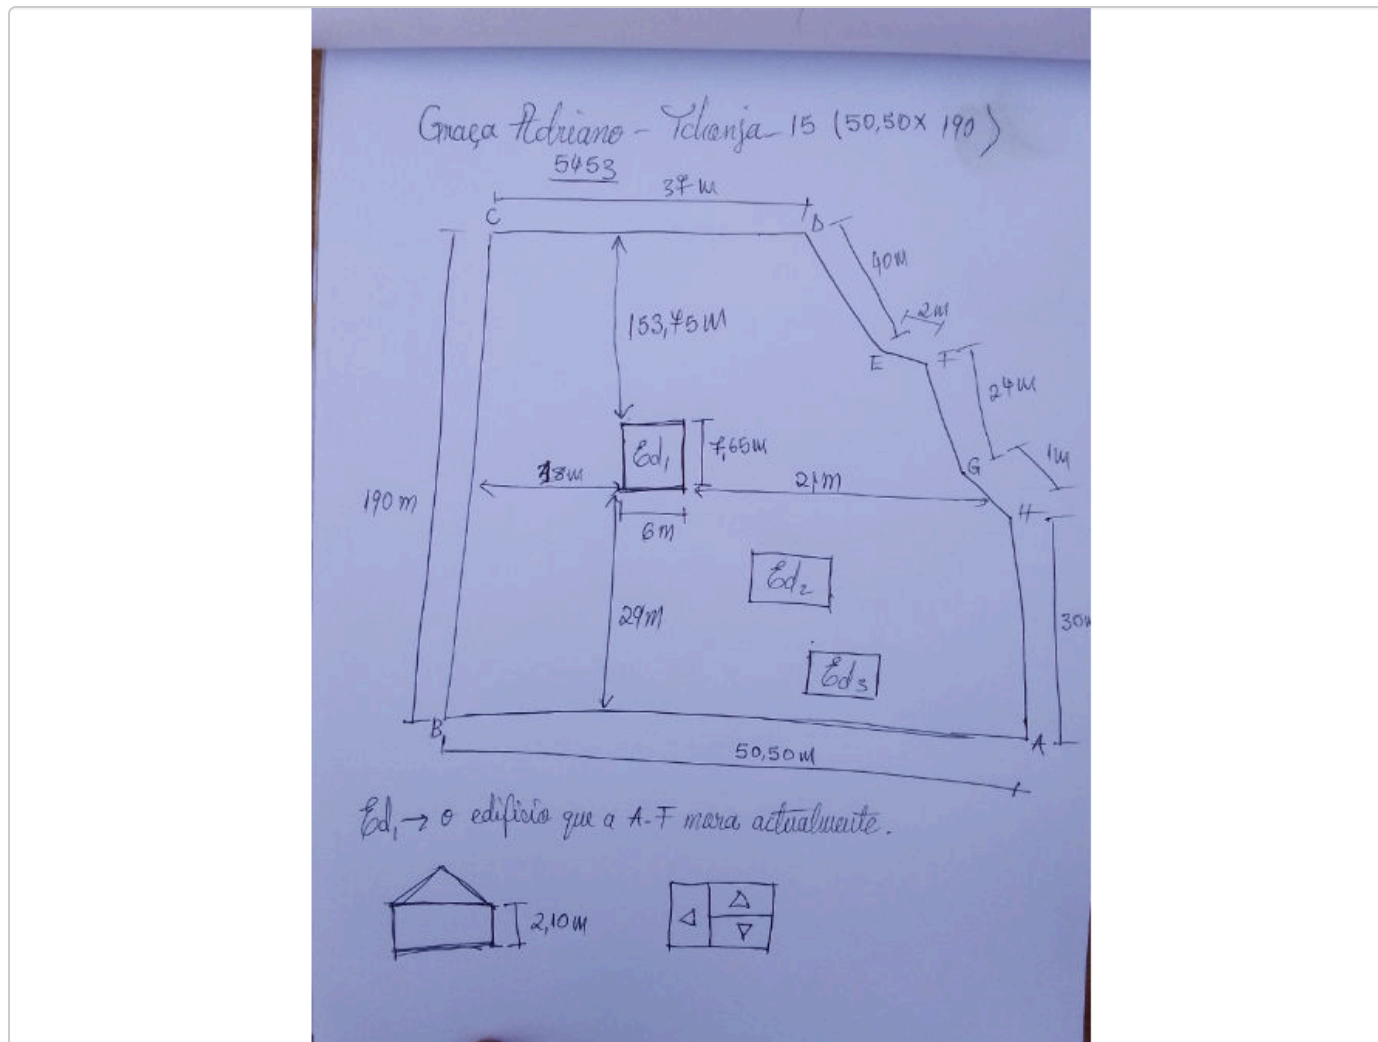 Graça Adriano - Tchanja 15 (50,50 x 190)
5453
37 m
C
D
40m
2m
153,75m
E
F
24m
Ed1
7,65m
G
1m
18m
21m
190 m
H
6m
Ed2
29m
30
Ed3
B
A
50,50m
Ed1 → o edificio que a A-F mora actualmente.
2,10m